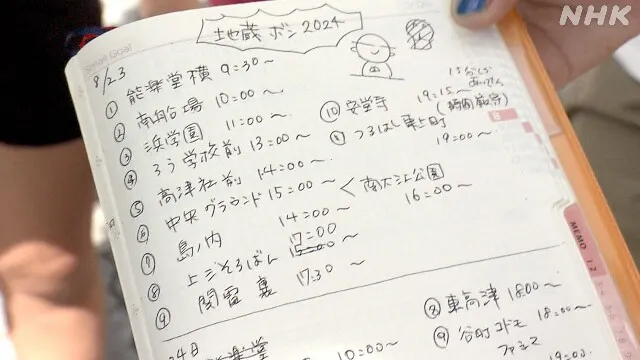 NHK
地蔵ボン2024
8/23
① 能楽堂横 9:30〜
② 南船場 10:00〜
③ 浜学園 11:00〜
④ ろう学校前 13:00〜
⑤ 高津社前 14:00〜
⑥ 中央グラウンド 15:00〜
⑦ 島ノ内 14:00〜
⑧ 上三そろばん 15:00 17:00〜
⑨ 関電裏 17:30〜
南大江公園
16:00〜
⑩ 安堂寺 19:15〜
(時間厳守)
つるはし東上町
19:00〜
MEMO 12
24日
能楽堂
10:00〜
⑧ 東高津 18:00〜
⑨ 谷町コドモ 18:00〜
19:00